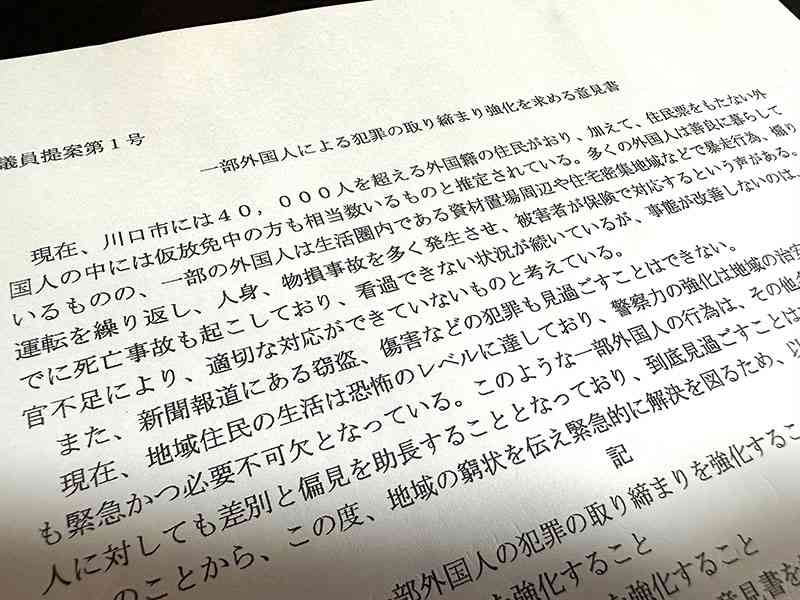 議員提案第１号
一部外国人による犯罪の取り締まり強化を求める意見書
現在、川口市には４０，０００人を超える外国籍の住民がおり、加えて、住民票をもたない外
国人の中には仮放免中の方も相当数いるものと推定されている。多くの外国人は善良に暮らして
いるものの、一部の外国人は生活圏内である資材置場周辺や住宅密集地域などで暴走行為、煽り
運転を繰り返し、人身、物損事故を多く発生させ、被害者が保険で対応するという声がある。
でに死亡事故も起こしており、看過できない状況が続いているが、事態が改善しないのは、
官不足により、適切な対応ができていないものと考えている。
また、新聞報道にある窃盗、傷害などの犯罪も見過ごすことはできない。
現在、地域住民の生活は恐怖のレベルに達しており、警察力の強化は地域の治安
も緊急かつ必要不可欠となっている。このような一部外国人の行為は、その他
人に対しても差別と偏見を助長することとなっており、到底見過ごすことは
のことから、この度、地域の窮状を伝え緊急的に解決を図るため、以
記
部外国人の犯罪の取り締まりを強化するこ
を強化すること
を強化すること
意見書を